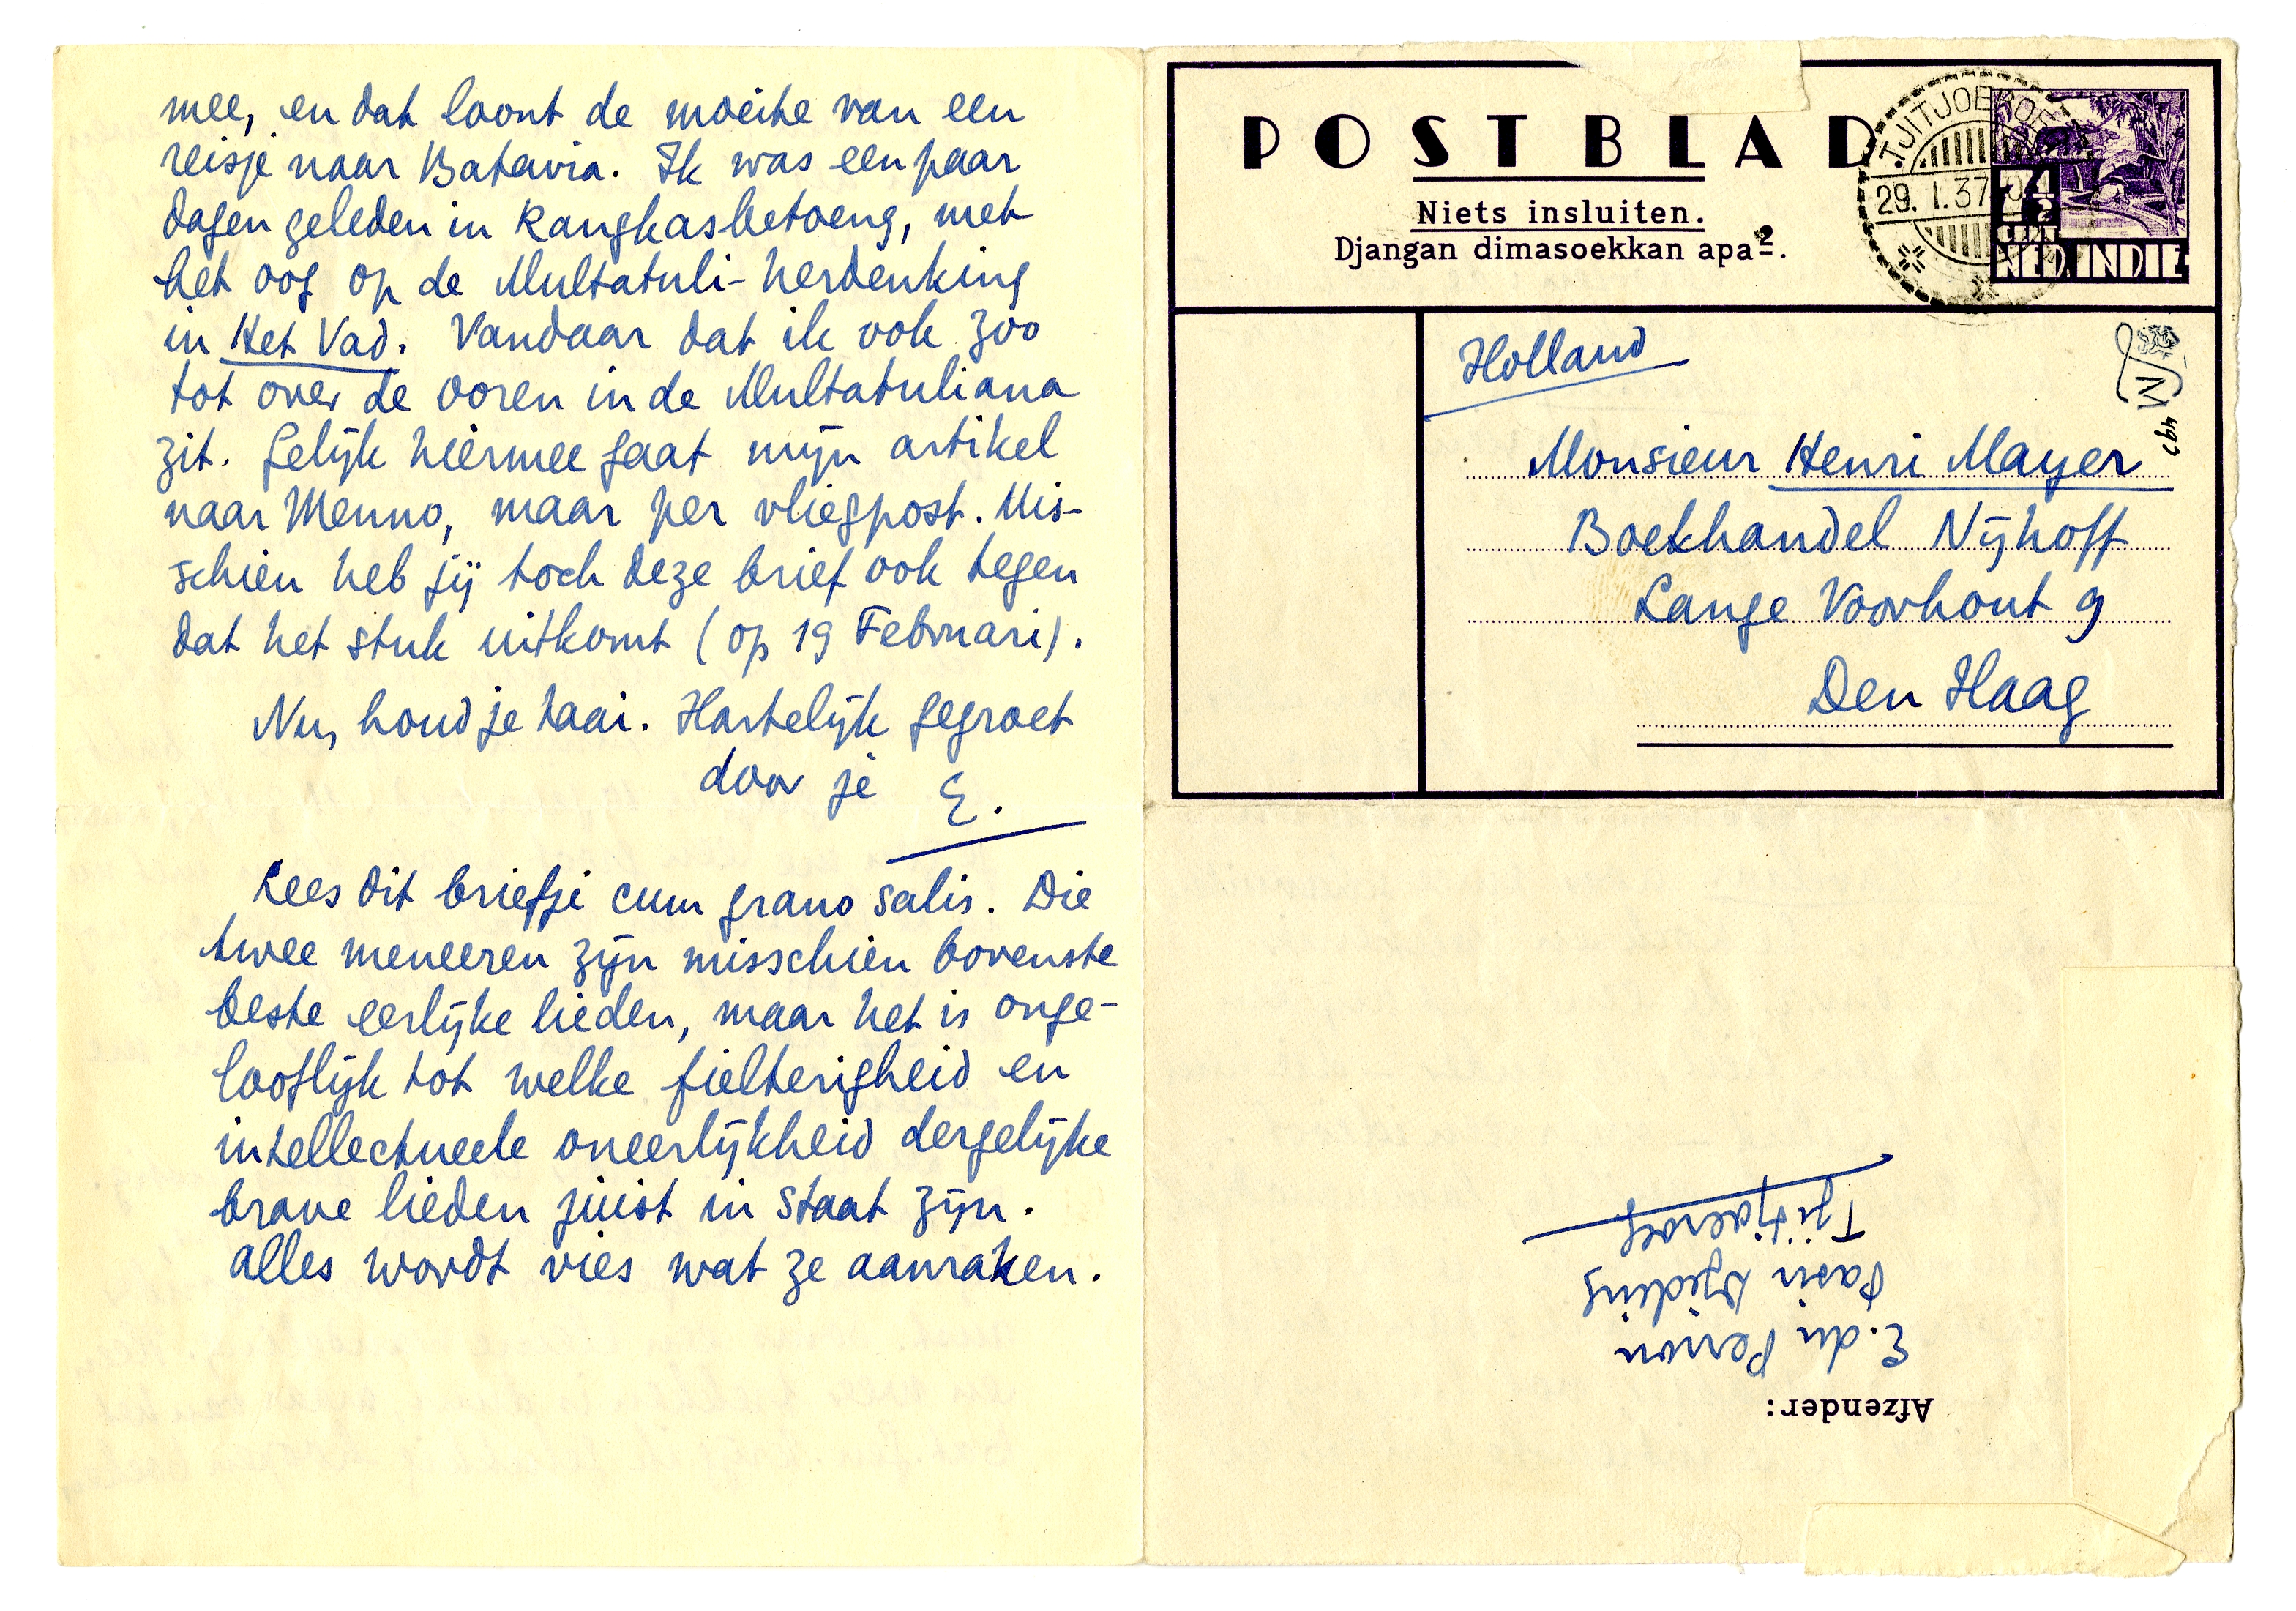 mee, en dat loont de moeite van een
reisje naar Batavia. Ik was een paar
dagen geleden in Rangkasbetoeng, met
het oog op de Multatuli-herdenking
in Het Vad. Vandaar dat ik ook zoo
tot over de ooren in de Multatuliana
zit. Gelijk hiermee gaat mijn artikel
naar Menno, maar per vliegpost. Mis-
schien heb jij toch deze brief ook tegen
dat het stuk uitkomt (op 19 Februari).
Nu, houd je taai. Hartelijk gegroet
door je E.
Lees dit briefje cum grano salis. Die
twee meneeren zijn misschien bovenste
beste eerlijke lieden, maar het is onge-
looflijk tot welke fielterigheid en
intellectueele oneerlijkheid dergelijke
brave lieden juist in staat zijn.
Alles wordt vies wat ze aanraken.
POSTBLAD
Niets insluiten.
Djangan dimasoekkan apa2.
29.1.37
CENT
NED. INDIE
Holland
M
497
Monsieur Henri Mayer
Boekhandel Nijhoff
Lange Voorhout 9
Den Haag
Afzender:
E. du Perron
Pasir Djeding